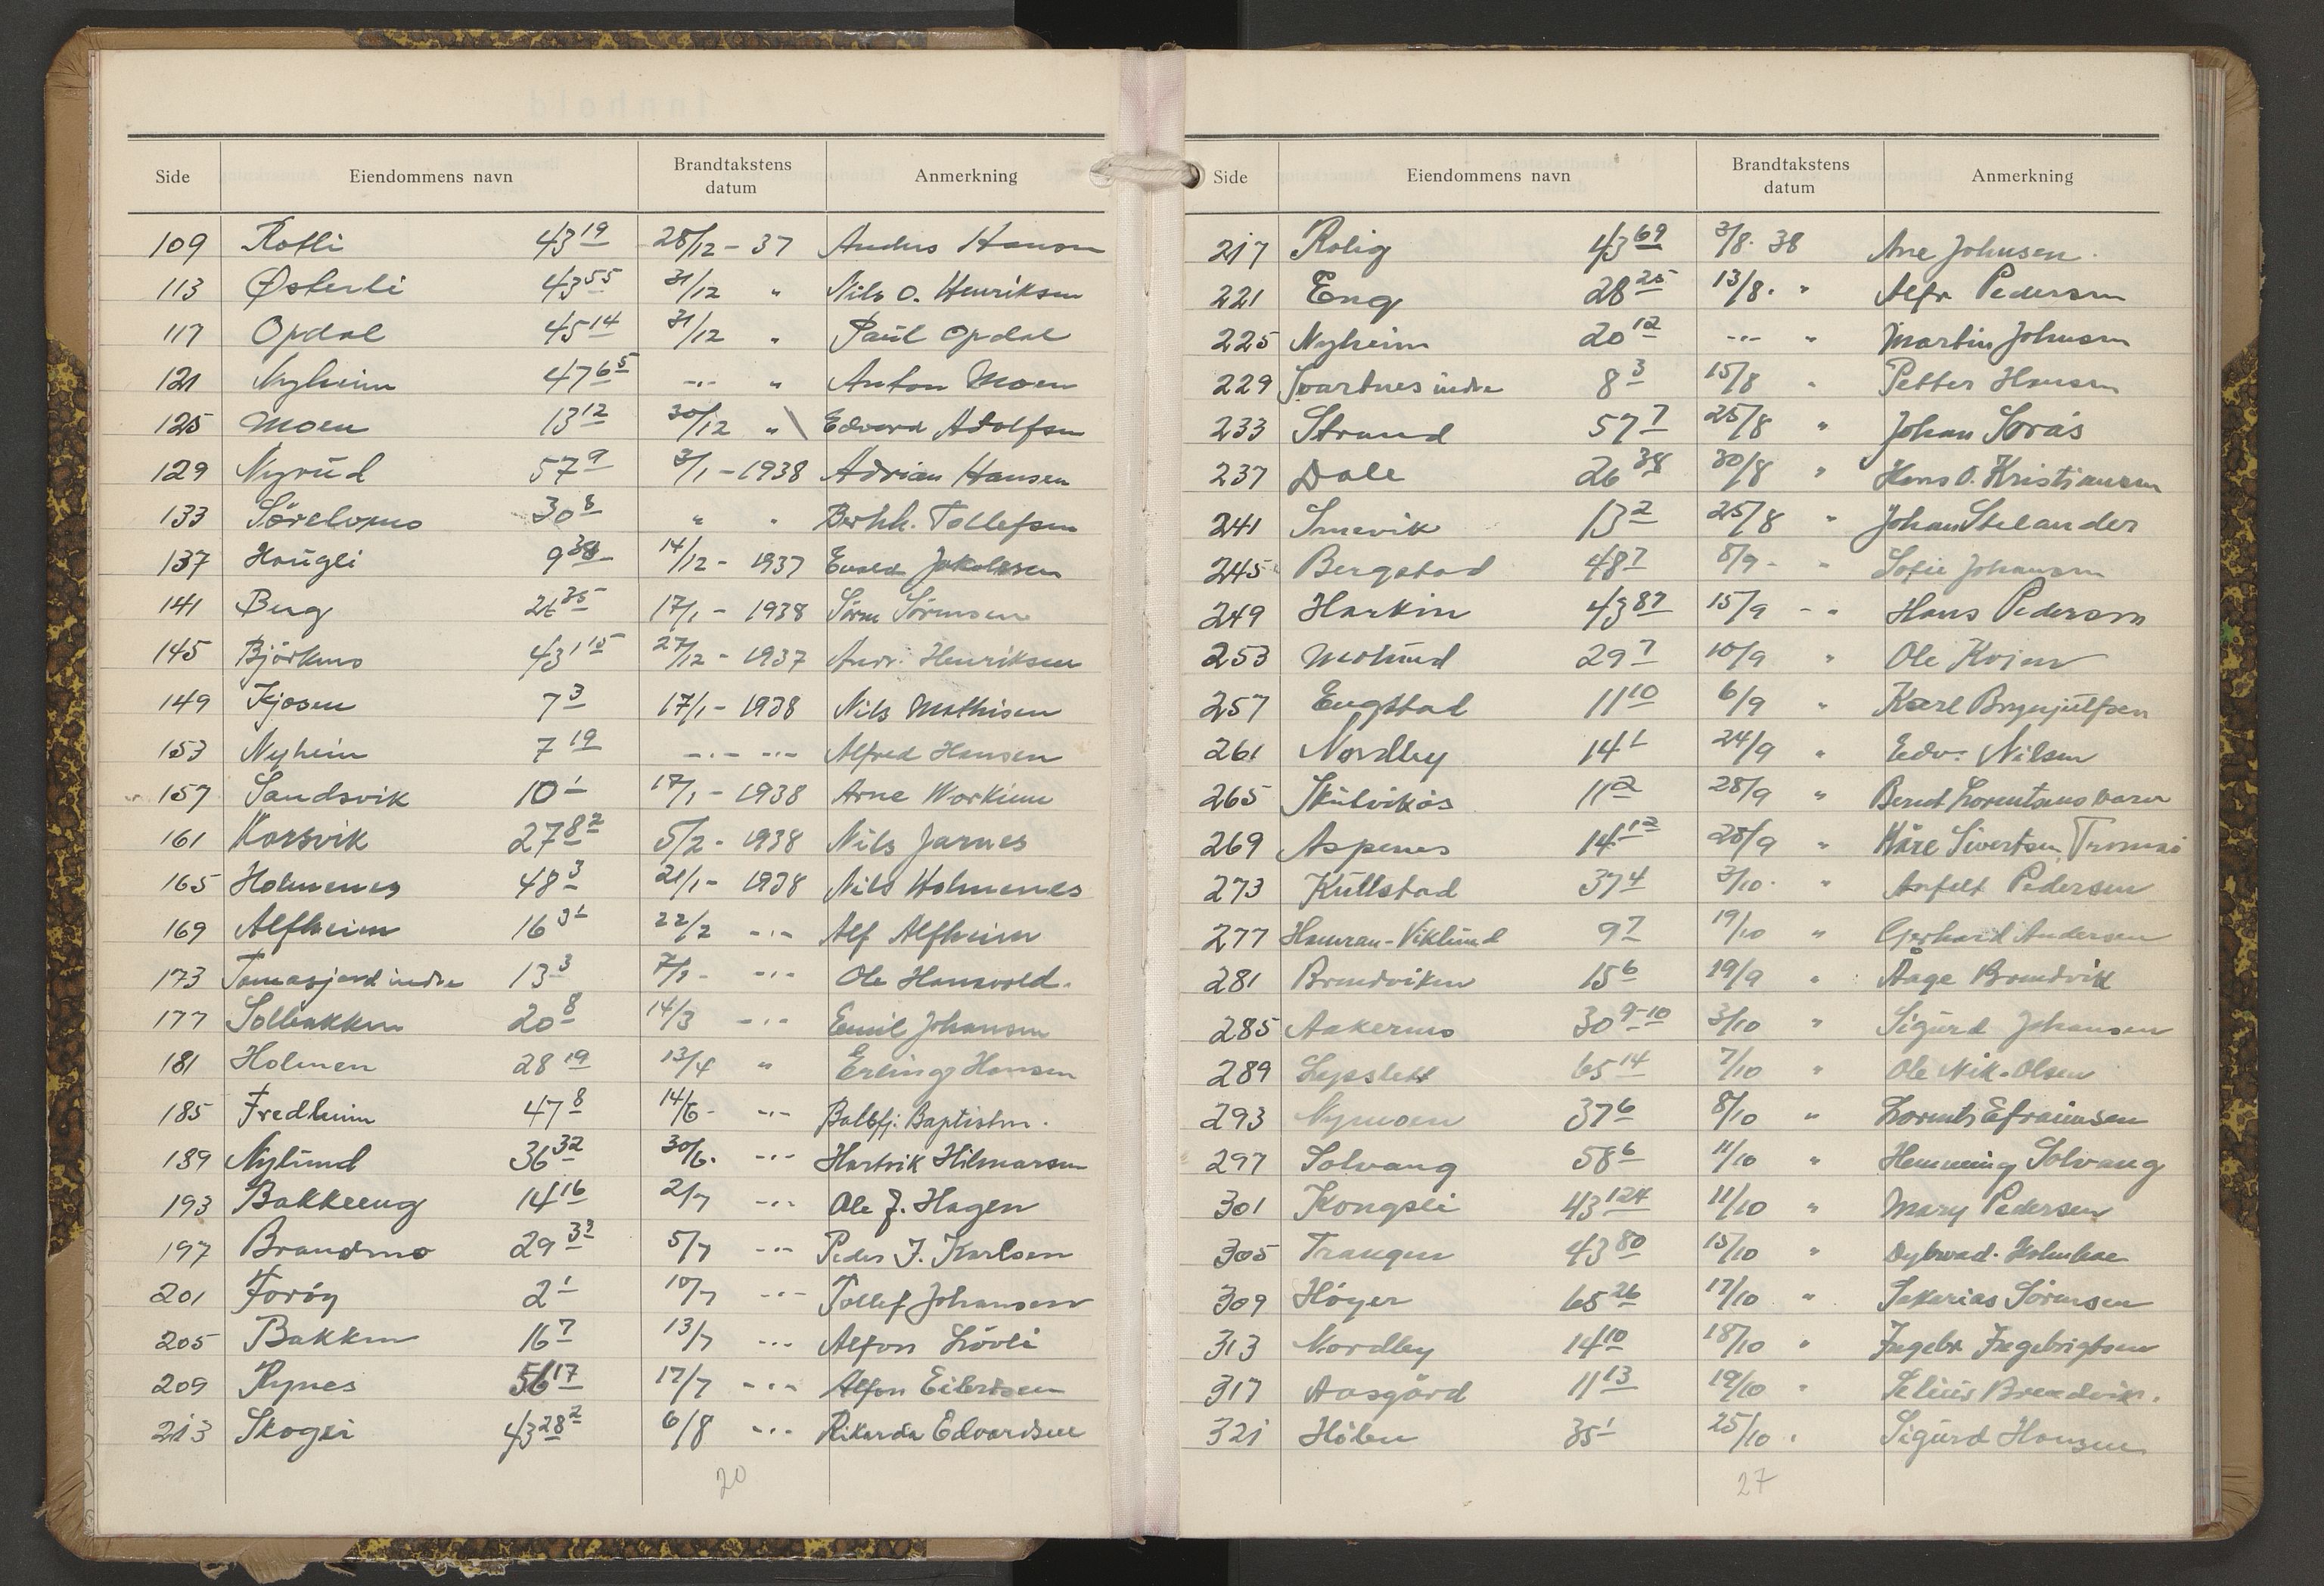 Side Eiendommens navn Brandtakstens datum Anmerkning
109 Rotli 43 19 28/12 - 37 Anders Hanson
113 Østerli 43 55 31/12 " Nils O. Henriksen
117 Opdal 45 14 31/12 " Paul Opdal
121 Nyheim 47 65 -"- " Anton Moen
125 Moen 13 12 30/12 " Edvard Adolfsen
129 Nyrud 57 9 3/1 - 1938 Adrian Hansen
133 Sörelvmo 30 8 " " Berhh. Tollefsen
137 Haugli 9 38 14/12 - 1937 Evald Jakobsen
141 Berg 26 35 17/1 - 1938 Sören Sörensen
145 Björkmo 43 115 27/12 - 1937 Andr. Henriksen
149 Kjosen 7 3 17/1 - 1938 Nils Mathisen
153 Nyheim 7 19 -"- -"- Alfred Hansen
157 Sandsvik 10 1 17/1 - 1938 Arne Workinn
161 Korsvik 27 82 5/2 - 1938 Nils Jarnes
165 Holmenes 48 3 21/1 - 1938 Nils Holmenes
169 Alfheim 16 31 22/2 -"- Alf Alfheim
173 Tomasjord indre 13 3 7/3 - -"- Ole Hansvold.
177 Solbakken 20 8 14/3 -"- Emil Johansen
181 Holmen 28 19 13/4 " Erling Hansen
185 Fredheim 47 8 14/6 - -"- Balsfj. Baptistm.
189 Nylund 36 32 30/6. -"- Hartvik Hilmarsen
193 Bakkeeng 14 16 2/7 -"- Ole J. Hagen
197 Brandmo 29 33 5/7 -"- Peder J. Karlsen
201 Forøy 2 1 10/7 -"- Tollef Johansen
205 Bakken 16 7 13/7 -"- Alfon Lövli
209 Rynes 56 17 17/7 -"- Alfon Eilertsen
213 Skogli 43 28 2 6/8 -"- Rikarda Edvardsen
20
Side Eiendommens navn Brandtakstens datum Anmerkning
217 Rolig 43 69 3/8. 38 Ane Johnsen.
221 Eng 28 25 13/8. " Alfr Pedersen
225 Nyheim 20 12 -"- " Martin Johnsen
229 Svartnes indre 8 3 15/8 " Petter Hansen
233 Strand 57 7 25/8 " Johan Sørås
237 Dale 26 38 30/8 " Hans O. Kristiansen
241 Smevik 13 2 25/8 " Johan Stelander
245 Bergstad 48 7 8/9 - " Sofie Johansen
249 Markin 43 87 15/9 - " Hans Pedersen
253 Molund 29 7 10/9 " Ole
257 Engstad 11 10 6/9 " Karl Brynjulfsen
261 Nordby 14 1 24/9 " Edv. Nilsen
265 Skulvikås 11 2 28/9 " Bernt Lorentsens barn
269 Aspenes 14 12 28/9 " Kåre Sivertsen, Tromsö
273 Kullstad 37 4 3/10. " Anfelt Pedersen
277 Hamran-Viklund 9 7 19/10 " Gerhard Andersen
281 Brendviken 15 6 19/9 " Åage Brendvik
285 Aakermo 30 9-10 3/10 " Sigurd Johansen
289 65 14 7/10 " Ole Nik. Olsen
293 Nymoen 37 6 8/10 " Lorents Efraimsen
297 Solvang 58 6 11/10 " Hemming Solvang
301 Kongsli 43 124 11/10 " Mary Pedersen
305 Trangen 43 80 15/10 " Dybwad. Holmboe
309 Höyer 65 26 17/10 " Sakarias Sörensen
313 Nordby 14 10 18/10 " Ingebr Ingebrigtsen
317 Aasgård 11 13 19/10 " Brendvik.
321 Hölen 35 1 25/10 " Sigurd Hansen
27